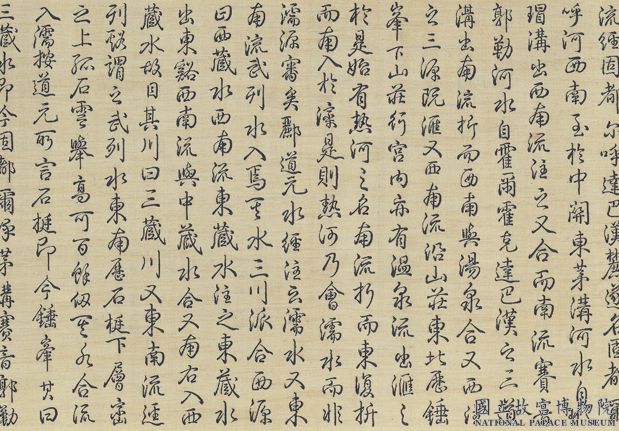 流經固都尔呼達巴漢麓遂名固都爾
呼河西南至於中關東茅溝河水自
瑁溝出西南流注之又合而南流賽音
郭勒河水自霍爾霍克達巴漢之三道
溝出南流折而西南與湯泉合又西流
之三源既滙又西南流沿山莊東北歷錘
峯下山莊行宮内亦有温泉流出滙之
於是始有熱河之名南流折而東復折
而南入於灤是則熱河乃會濡水而非
濡源審矣酈道元水經注云濡水又東
南流武列水入焉其水三川派合西源
曰西藏水西南流東藏水注之東藏水
出東谿西南流與中藏水合又南右入西
藏水故目其川曰三藏川又東南流逕
列谿謂之武列水東南歷石梃下層巒
之上孤石雲舉高可百餘仞其水合流
入濡按道元所言石梃即今錘峯其曰
三藏水即今固都爾呼茅溝賽音郭勒
國立故宮博物院
NATIONAL PALACE MUSEUM